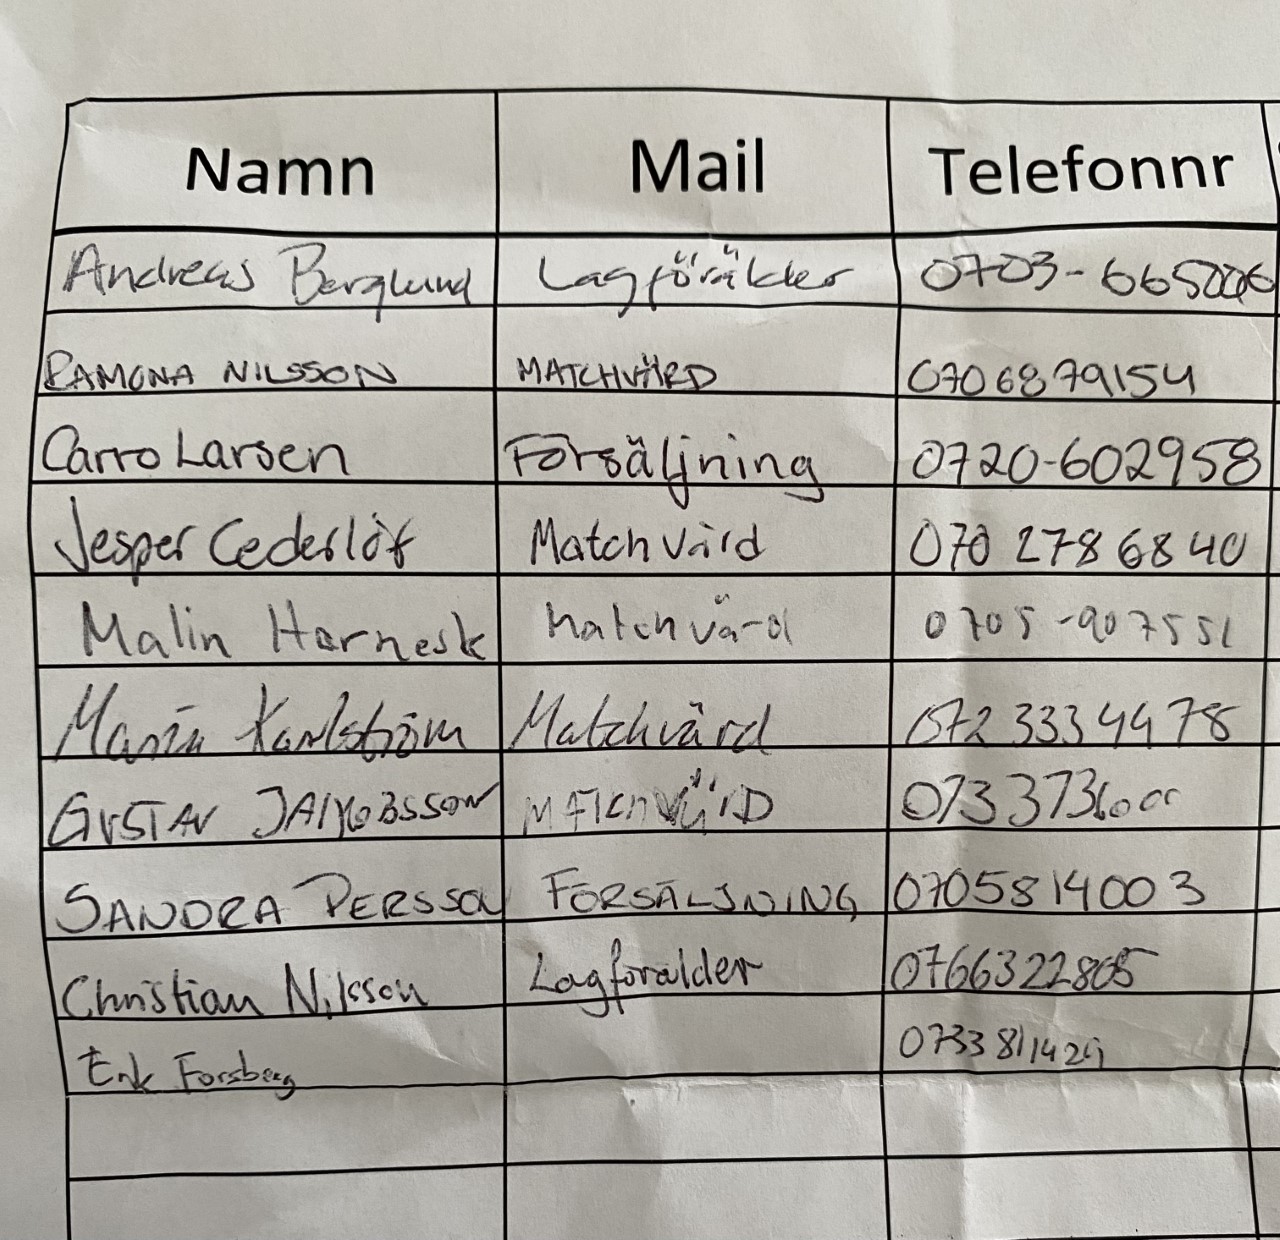 Namn Mail Telefonnr
Andreas Berglund Lagföräkler 0703-665006
RAMONA NILSSON MATCHVÄRD 0706879154
Carro Larsen Försäljning 0720-602958
Jesper Cederlöf Matchvärd 070 278 68 40
Malin Harnesk Matchvärd 0705-907551
Maria Karlström Matchvärd 072 333 44 78
GUSTAV JAKOBSSON MATCHVÄRD 0733736000
SANDRA PERSSON FÖRSÄLJNING 0705814003
Christian Nilsson Lagförälder 0766322805
Erik Forsberg 0733811429